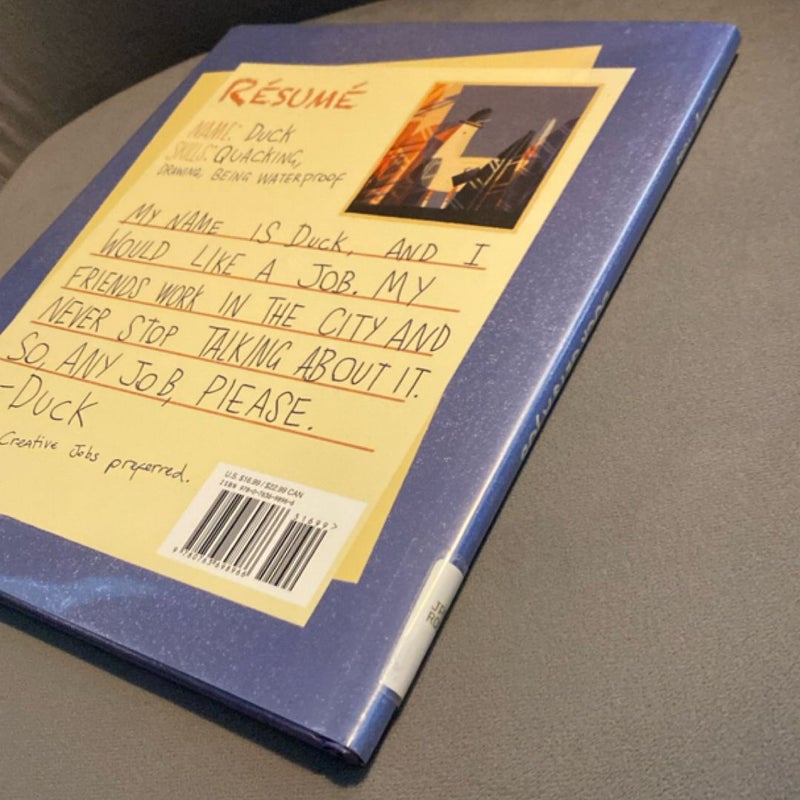 RÉSUMÉ
NAME: DUCK
SKILLS: QUACKING,
DRAWING, BEING WATERPROOF
MY NAME IS DUCK, AND I
WOULD LIKE A JOB. MY
FRIENDS WORK IN THE CITY AND
NEVER STOP TALKING ABOUT IT.
SO, ANY JOB, PLEASE.
-DUCK
Creative Jobs preferred.
U.S. $16.99 / $22.99 CAN
ISBN 978-0-7636-9896-6
51699>
9 780763 698966